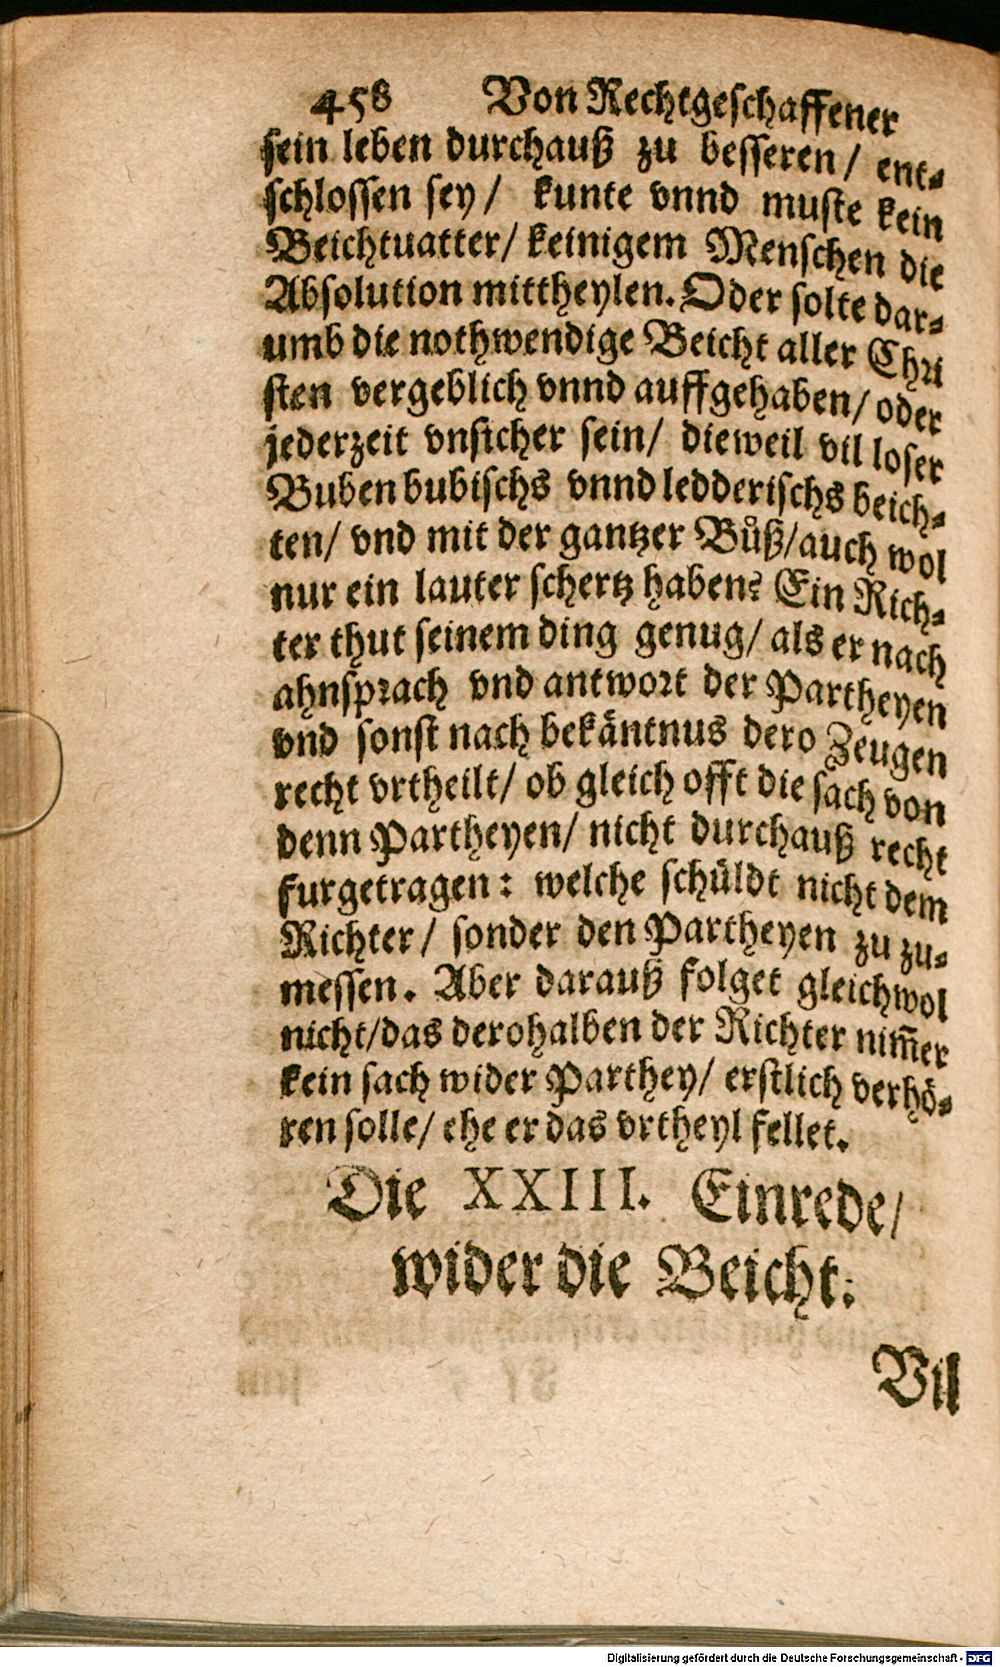 458 Von Rechtgeschaffener
sein leben durchauß zu besseren/ ent-
schlossen sey/ kunte vnnd muste kein
Beichtuatter/ keinigem Menschen die
Absolution mittheylen. Oder solte dar-
umb die nothwendige Beicht aller Chri
sten vergeblich vnnd auffgehaben/ oder
jederzeit vnsicher sein/ dieweil vil loser
Buben bubischs vnnd ledderischs beich-
ten/ vnd mit der gantzer Bůß/ auch wol
nur ein lauter schertz haben? Ein Rich-
ter thut seinem ding genug/ als er nach
ahnsprach vnd antwort der Partheyen
vnd sonst nach bekäntnus dero Zeugen
recht vrtheilt/ ob gleich offt die sach von
denn Partheyen/ nicht durchauß recht
furgetragen: welche schüldt nicht dem
Richter/ sonder den Partheyen zu zu-
messen. Aber darauß folget gleichwol
nicht/ das derohalben der Richter nim̃er
kein sach wider Parthey/ erstlich verhö-
ren solle/ ehe er das vrtheyl fellet.
Die XXIII. Einrede/
wider die Beicht:
Vil
Digitalisierung gefördert durch die Deutsche Forschungsgemeinschaft - DFG